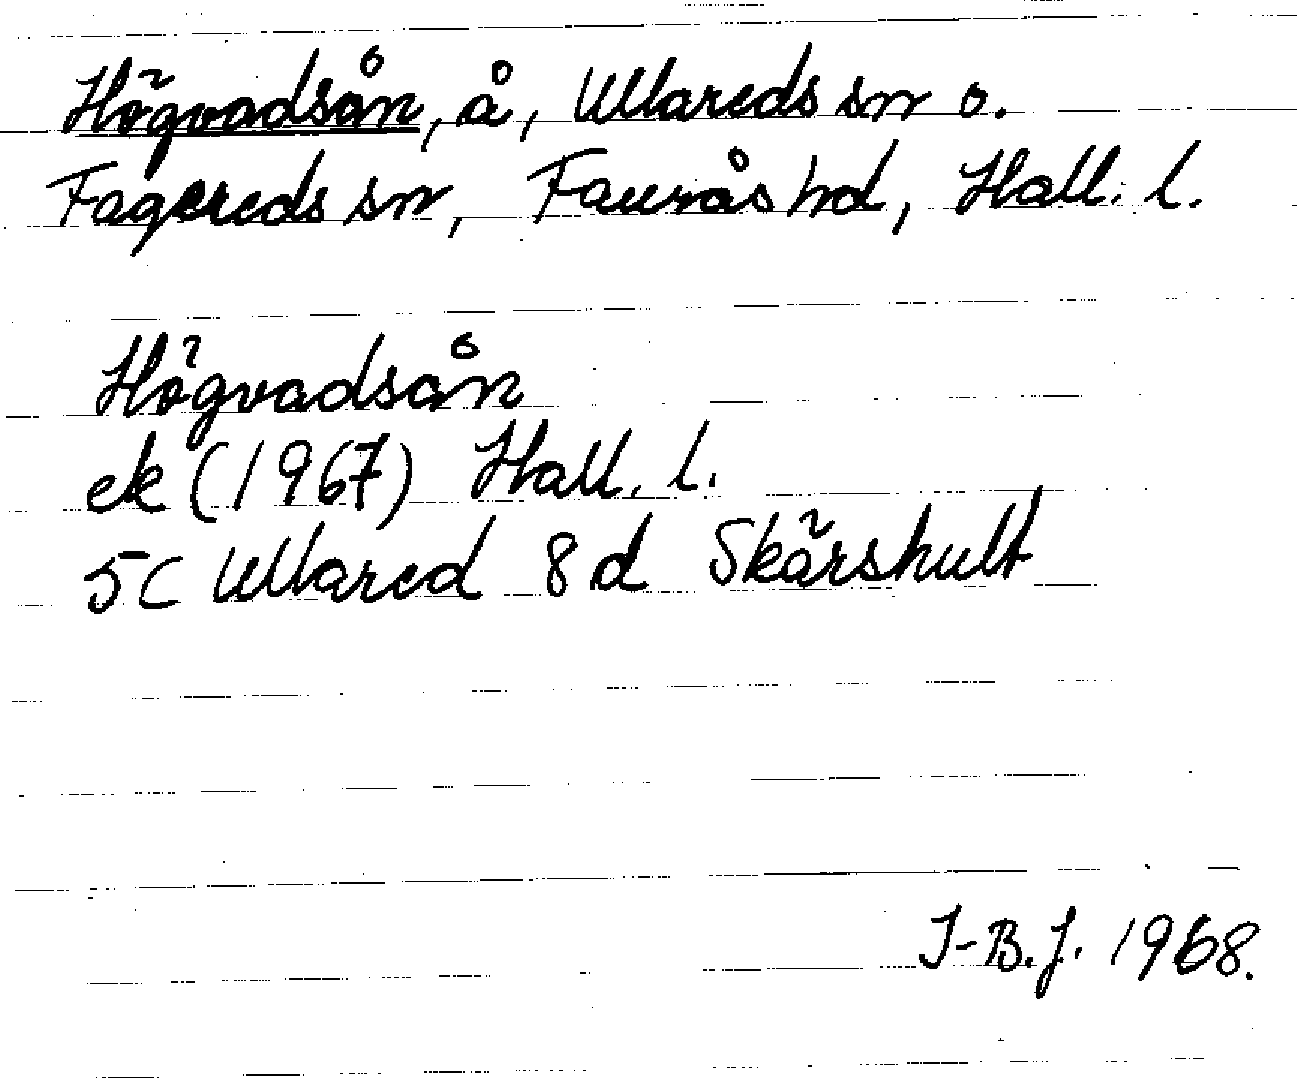 Högvadsån, å, Ullareds sn o.
Fagereds sn, Faurås hd, Hall. l.
Högvadsån
ek (1967) Hall. l.
5C Ullared 8d Skärshult
I-B.J. 1968.